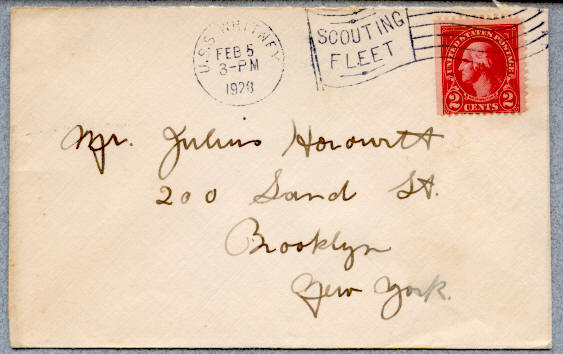 U.S.S. WHITNEY
FEB 5
3-PM
1928
SCOUTING
FLEET
UNITED STATES POSTAGE
WASHINGTON
2 CENTS 2
Mr. Julius Horowitt
200 Sand St.
Brooklyn
New York.